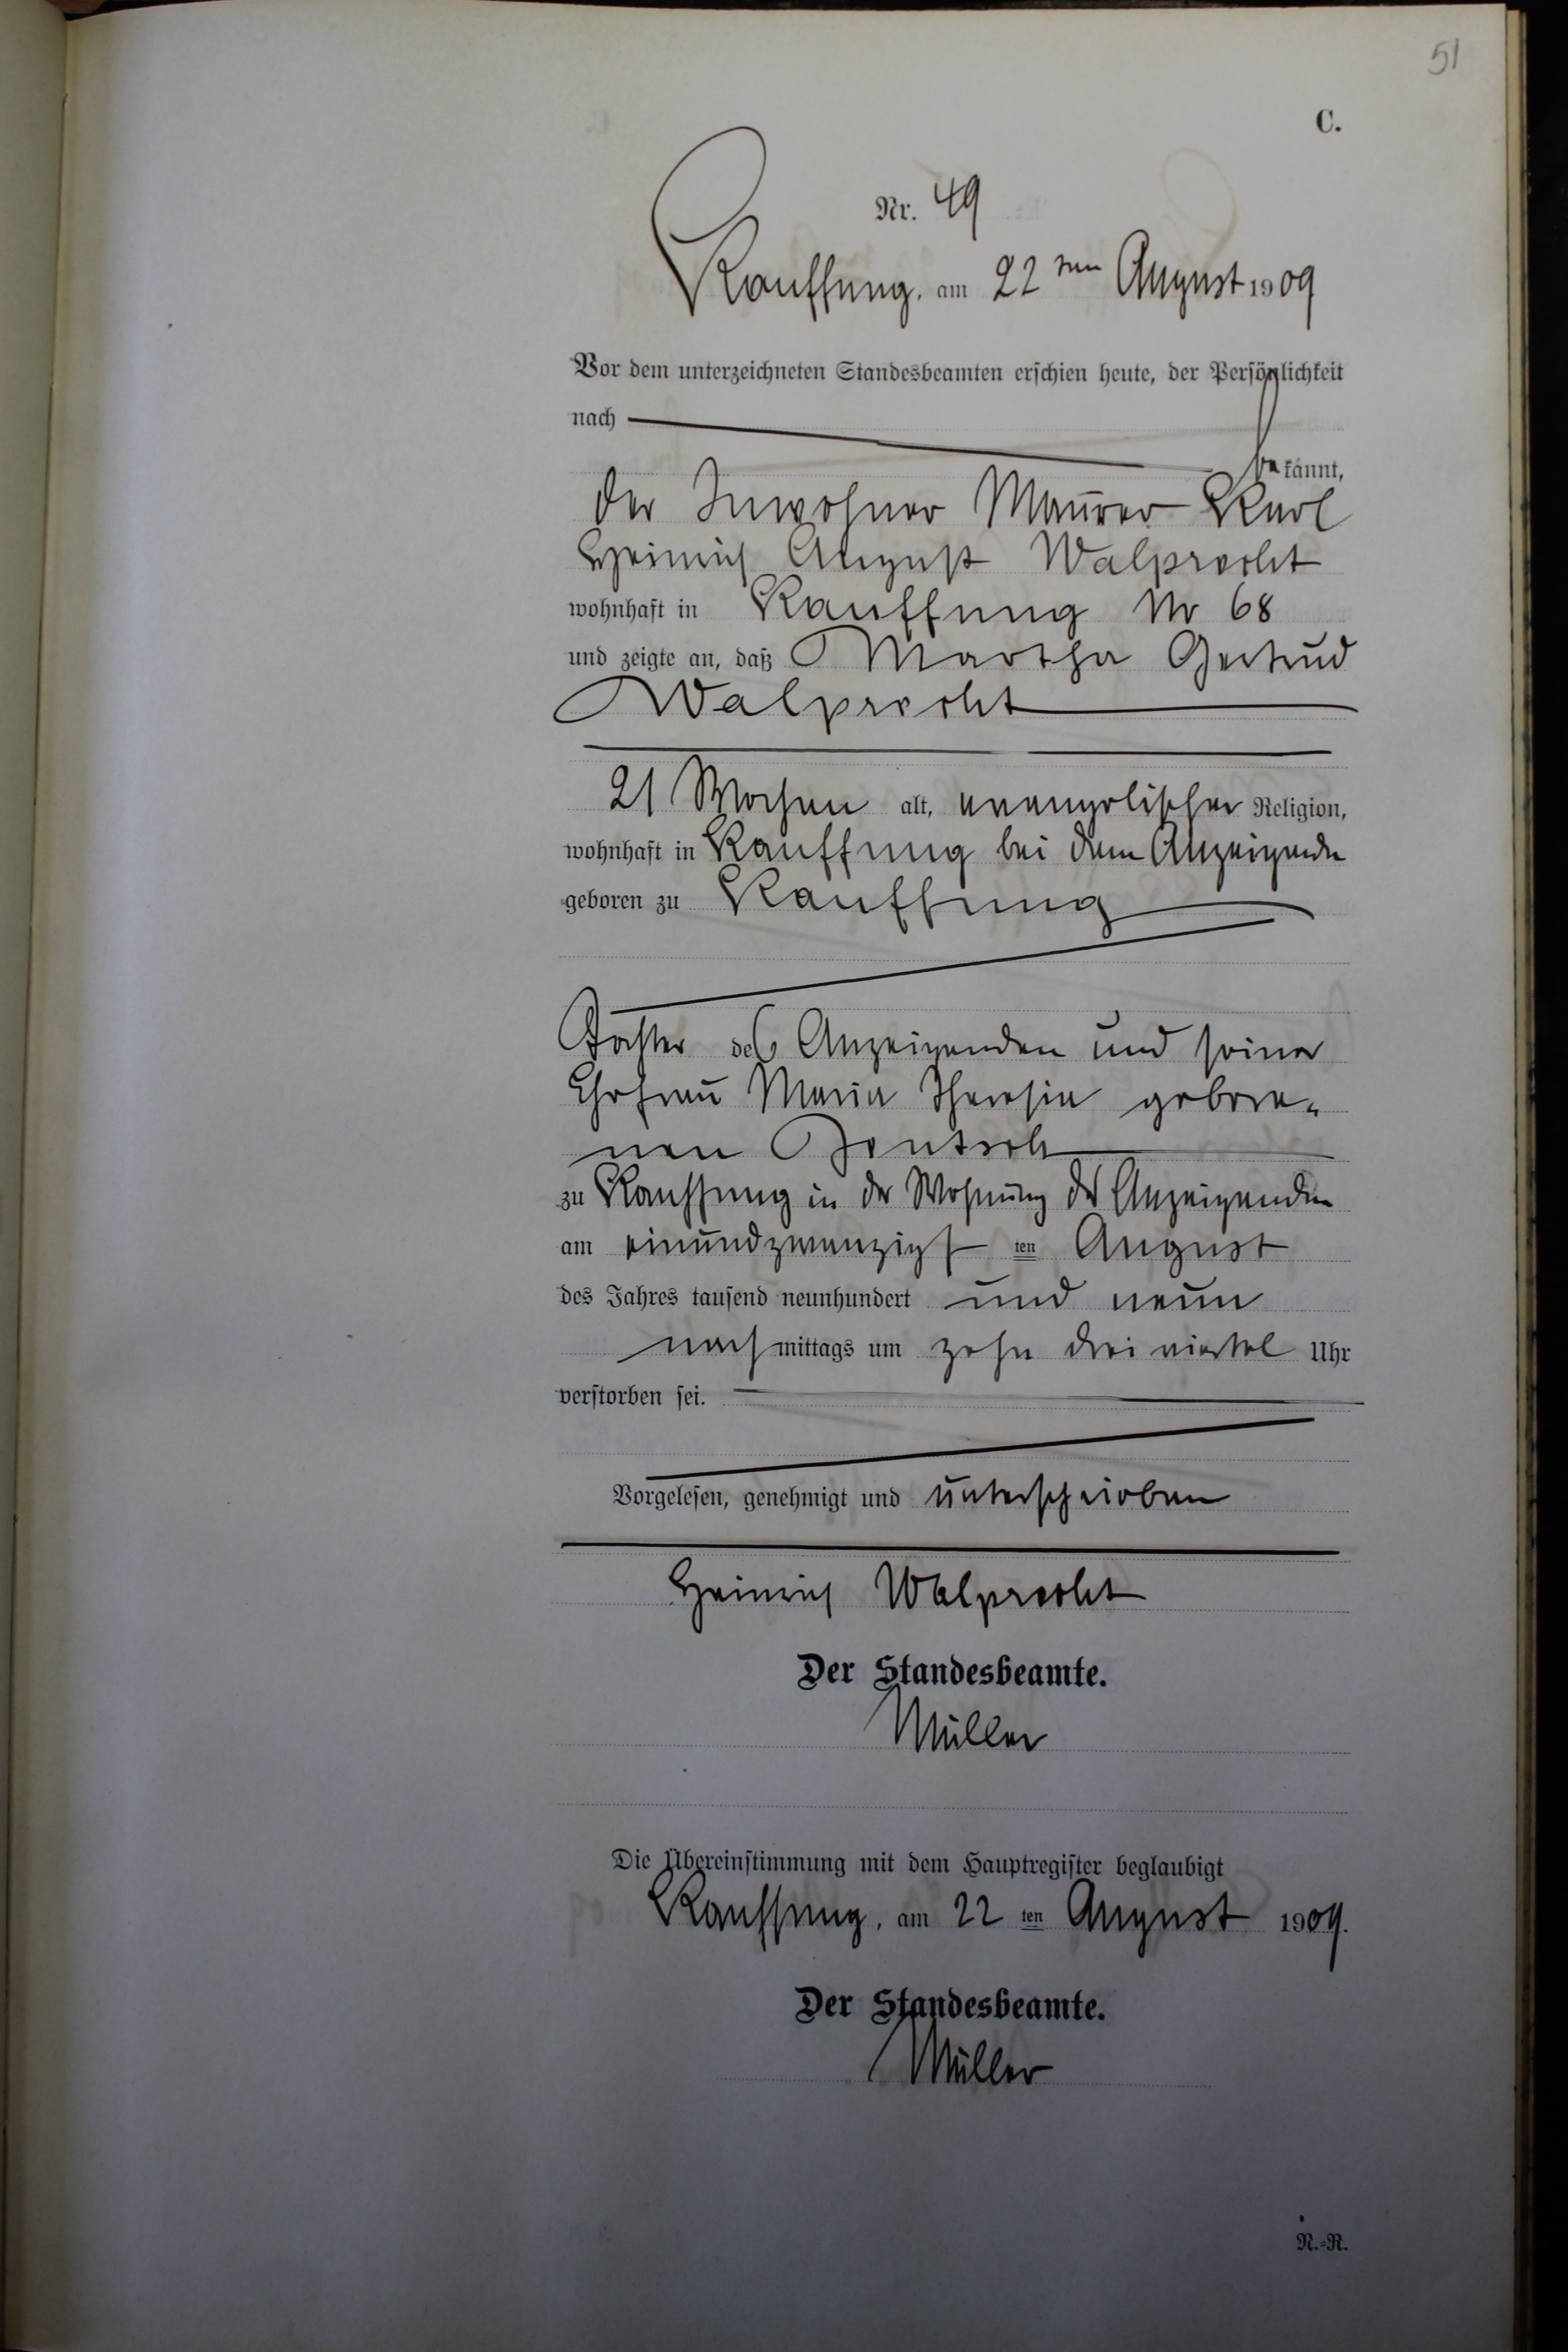 51
C.
Nr. 49
Kauffung, am 22 ten August 1909
Vor dem unterzeichneten Standesbeamten erschien heute, der Persönlichkeit
nach
bekannt,
der Inwohner Maurer Karl
Heinrich August Walprecht
wohnhaft in Kauffung Nr 68
und zeigte an, daß Martha Gertrud
Walprecht
21 Wochen alt, evangelischer Religion,
wohnhaft in Kauffung bei dem Anzeigenden
geboren zu Kauffung
Tochter des Anzeigenden und seiner
Ehefrau Maria Theresia gebore-
nen Jentsch
zu Kauffung in der Wohnung des Anzeigenden
am einundzwanzigsten August
des Jahres tausend neunhundert und neun
nachmittags um zehn drei viertel Uhr
verstorben sei.
Vorgelesen, genehmigt und unterschrieben
Heinrich Walprecht
Der Standesbeamte.
Müller
Die Übereinstimmung mit dem Hauptregister beglaubigt
Kauffung, am 22 ten August 1909.
Der Standesbeamte.
Müller
N.=R.